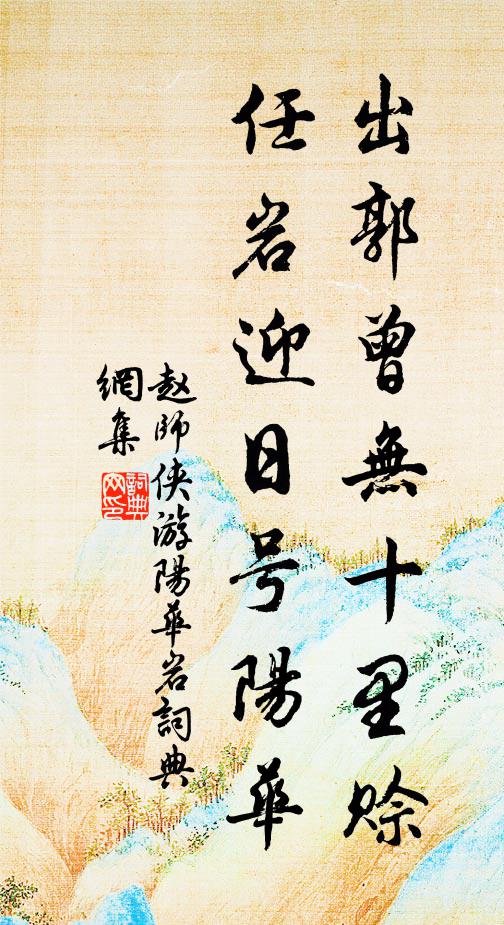 出郭曾無十里賒
任岩迎日号陽華
赵師侠游陽華岩詞典
網集
詞典
网印